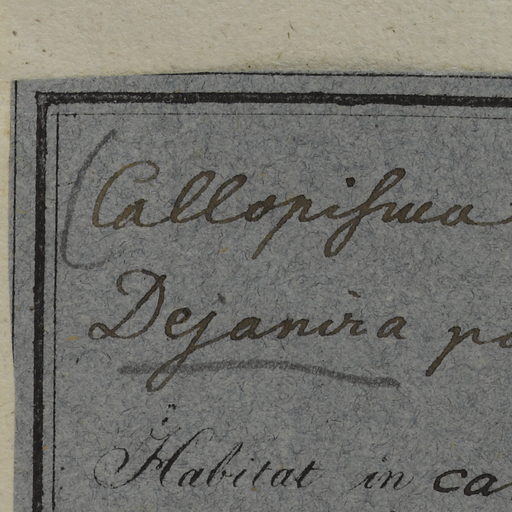 (Callopisma
Dejanira
Habitat in